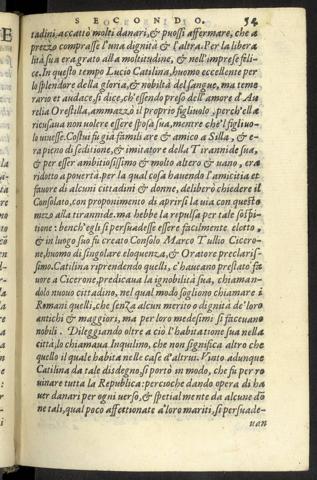 SECONDO. 54
tadini, accattò molti danari, & puossi affermare, che a
prezzo comprasse l'una dignità & l'altra. Per la libera
lità sua era grato alla moltitudine, & nell'imprese feli-
ce. In questo tempo Lucio Catilina, huomo eccellente per
lo splendore della gloria, & nobiltà del sangue, ma teme
rario et audace, si dice, ch'essendo preso dell'amore d'Au
relia Orestilla, ammazzò il proprio figliuolo, perch'ella
ricusaua non uolere essere sposa sua, mentre che'l figliuo-
lo uiuesse. Costui fu già familiare & amico a Silla, & e-
ra pieno di seditione, & imitatore della Tirannide sua,
& per esser ambitiosissimo & molto altero & uano, era
ridotto a pouertà. per la qual cosa hauendo l'amicitia et
fauore di alcuni cittadini & donne, deliberò chiedere il
Consolato, con proponimento di aprirsi la uia con questo
mezo alla tirannide. ma hebbe la repulsa per tale sospi-
tione: bench'egli si persuadesse essere facilmente eletto,
& in luogo suo fu creato Consolo Marco Tullio Cicero-
ne, huomo di singolare eloquenza, & Oratore preclaris-
simo. Catilina riprendendo quelli, c'haueano prestato fa
uore a Cicerone, predicaua la ignobilità sua, chiaman-
dolo nuouo cittadino, nel qual modo sogliono chiamare i
Romani quelli, che senza alcun merito o dignità de' loro
antichi & maggiori, ma per loro medesimi si faceuano
nobili. Dileggiando oltre a ciò l'habitatione sua nella
città, lo chiamaua Inquilino, che non significa altro che
quello il quale habita nelle case d'altrui. Vinto adunque
Catilina da tale disdegno, si portò in modo, che fu per ro
uinare tutta la Republica: percioche dando opera di ha
uer danari per ogni uerso, & spetialmente da alcune dō
ne tali, qual poco affettionate a' loro mariti, si persuade-
uan